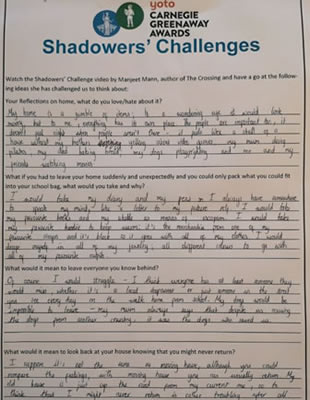 yoto
CARNEGIE
GREENAWAY
AWARDS
Shadowers' Challenges
Watch the Shadowers' Challenge video by Manjeet Mann, author of The Crossing and have a go at the follow-
ing ideas she has challenged us to think about:
Your Reflections on home, what do you love/hate about it?
My home is a jumble of items to a wandering eye it would look
messy but to me everything has its own place. The people are important too, it
doesn't feel right when people aren't there - it feels like a shell of a
home without my brothers yelling about video games my mum doing
my dad my dogs playfighting and me and my
What if you had to leave your home suddenly and unexpectedly and you could only pack what you could fit
into your school bag, what would you take and why?
I would take my diary and my pens so I always have somewhere
to my or to my future self. I would take
my favourite books and my as means of escapism. I would take
my favourite hoodie to keep warm, it's the merchandise from one of my
favourite and it's black so it goes with all of my clothes. I would
in all of my jewelry all different colours to go with
all of my favourite outfits.
What would it mean to leave everyone you know behind?
Of course I would struggle - I think everyone has at least someone they
would miss, whether it's a best friend or just someone who
you see every day on the walk home from school. My dogs would be
impossible to leave - my mum always says that despite us moving
the dogs from another country, it was the dogs who saved us.
What would it mean to look back at your house knowing that you might never return?
I suppose it's not the same as moving house, although you could
compare the feelings, with moving house you can usually return. My
old house is just up the road from my current one, so to
think that I might never return is rather troubling after all